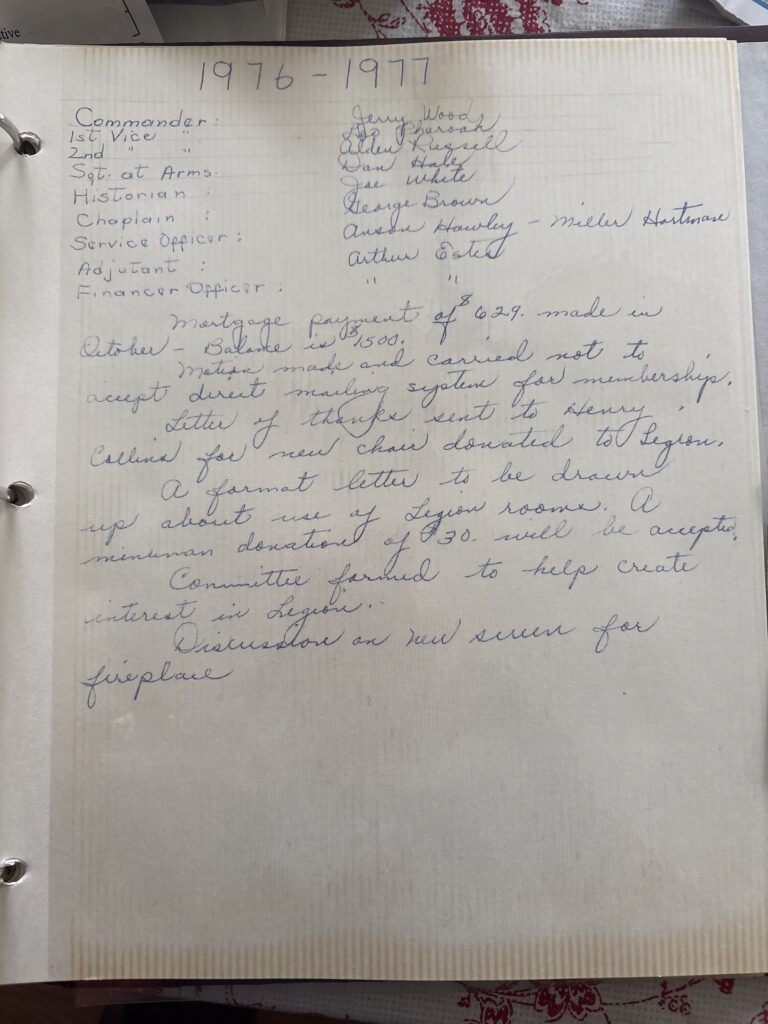 ctive
1976 - 1977
Commander: Jerry Wood
1st Vice " Pharoah
2nd " " Alden Russell
Sgt. at Arms. Dan Hale
Historian : Joe White
Chaplain : George Brown
Service Officer: Anson Hawley - Miller Hartman
Adjutant : Arthur Estes
Financer Officer: " "
Mortgage payment of $629. made in
October - Balance is $1500.
Motion made and carried not to
accept direct mailing system for membership.
Letter of thanks sent to Henry
Collins for new chair donated to Legion.
A format letter to be drawn
up about use of Legion rooms. A
minuman donation of $30. will be accepted.
Committee formed to help create
interest in Legion.
Discussion on new screen for
fireplace